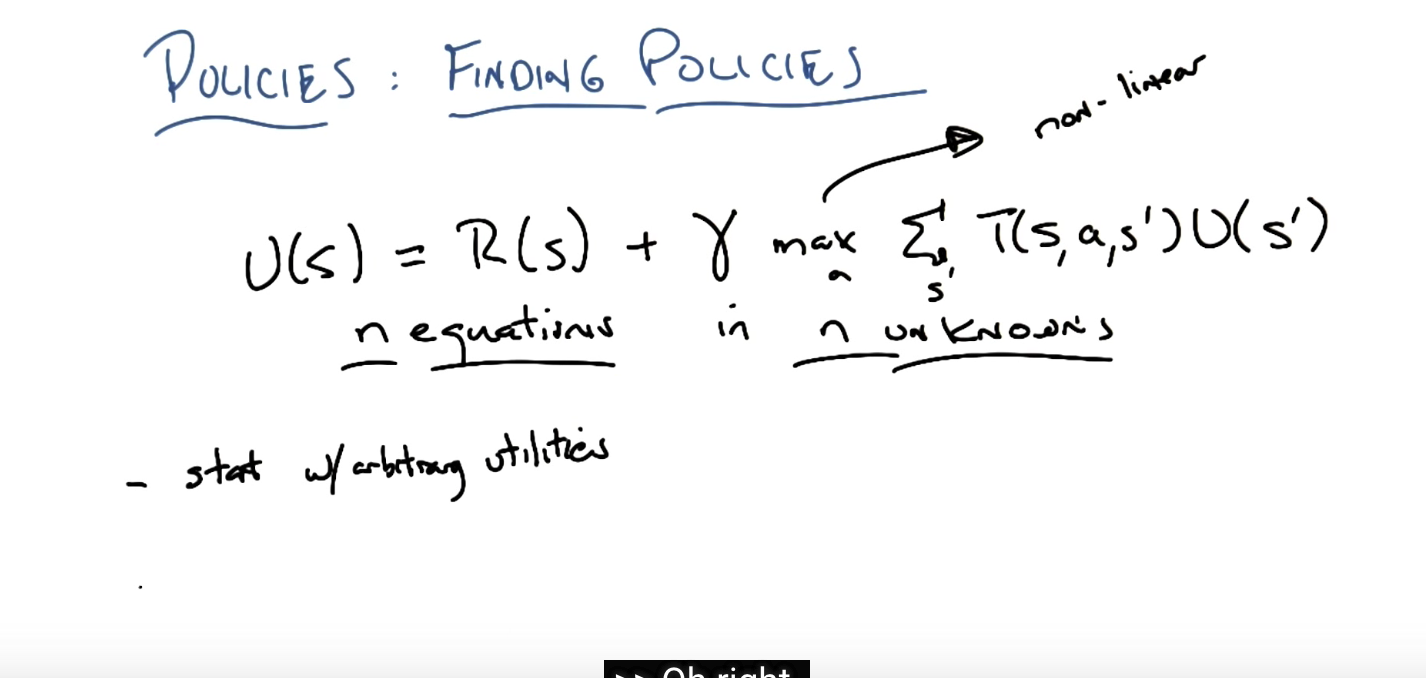 POLICIES : FINDING POLICIES
non-linear
U(s) = R(s) + γ max Σ T(s, a, s') U(s')
a s'
n equations in n unknowns
- start w/ arbitrary utilities
>> Oh right.